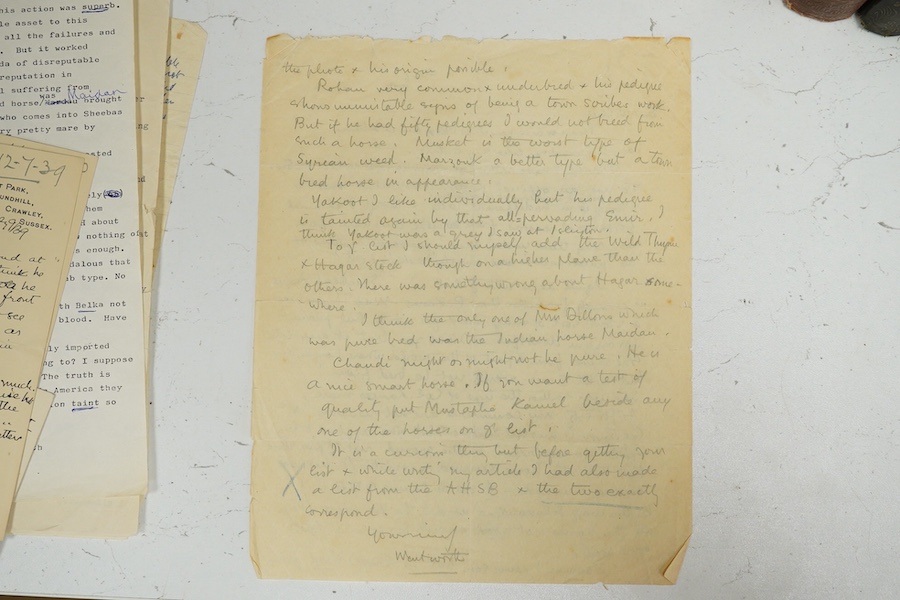 his action was superb.
le asset to this
all the failures and
. But it worked
da of disreputable
reputation in
l suffering from
was Maidan
d horse/ brought
who comes into Sheebas
ry pretty mare by
12-7-39
T PARK,
UNDHILL,
CRAWLEY,
SUSSEX.
them
d about
w nothing of
s enough.
dalous that
b type. No
th Belka not
blood. Have
ly imported
ng to? I suppose
The truth is
America they
on taint so
the photo & his origin possible.
Rohan very common & underbred & his pedigree
shows inimitable signs of being a town scribes work.
But if he had fifty pedigrees I would not breed from
such a horse. Musket is the worst type of
Syrian weed. Marzouk a better type but a town
bred horse in appearance.
Yakoot I like individually but his pedigree
is tainted again by that all-pervading Emir. I
think Yakoot was a grey I saw at Islington.
To yr list I should myself add the Wild Thyme
& Hagar stock though on a higher plane than the
others. There was something wrong about Hagar some-
where.
I think the only one of Miss Dillons which
was pure bred was the Indian horse Maidan.
Chandi might or might not be pure. He is
a nice smart horse. If you want a test of
quality put Mustapha Kamel beside any
one of the horses on yr list.
It is a curious thing but before getting your
list & while writing my article I had also made
X a list from the AHSB & the two exactly
correspond.
Wentworth